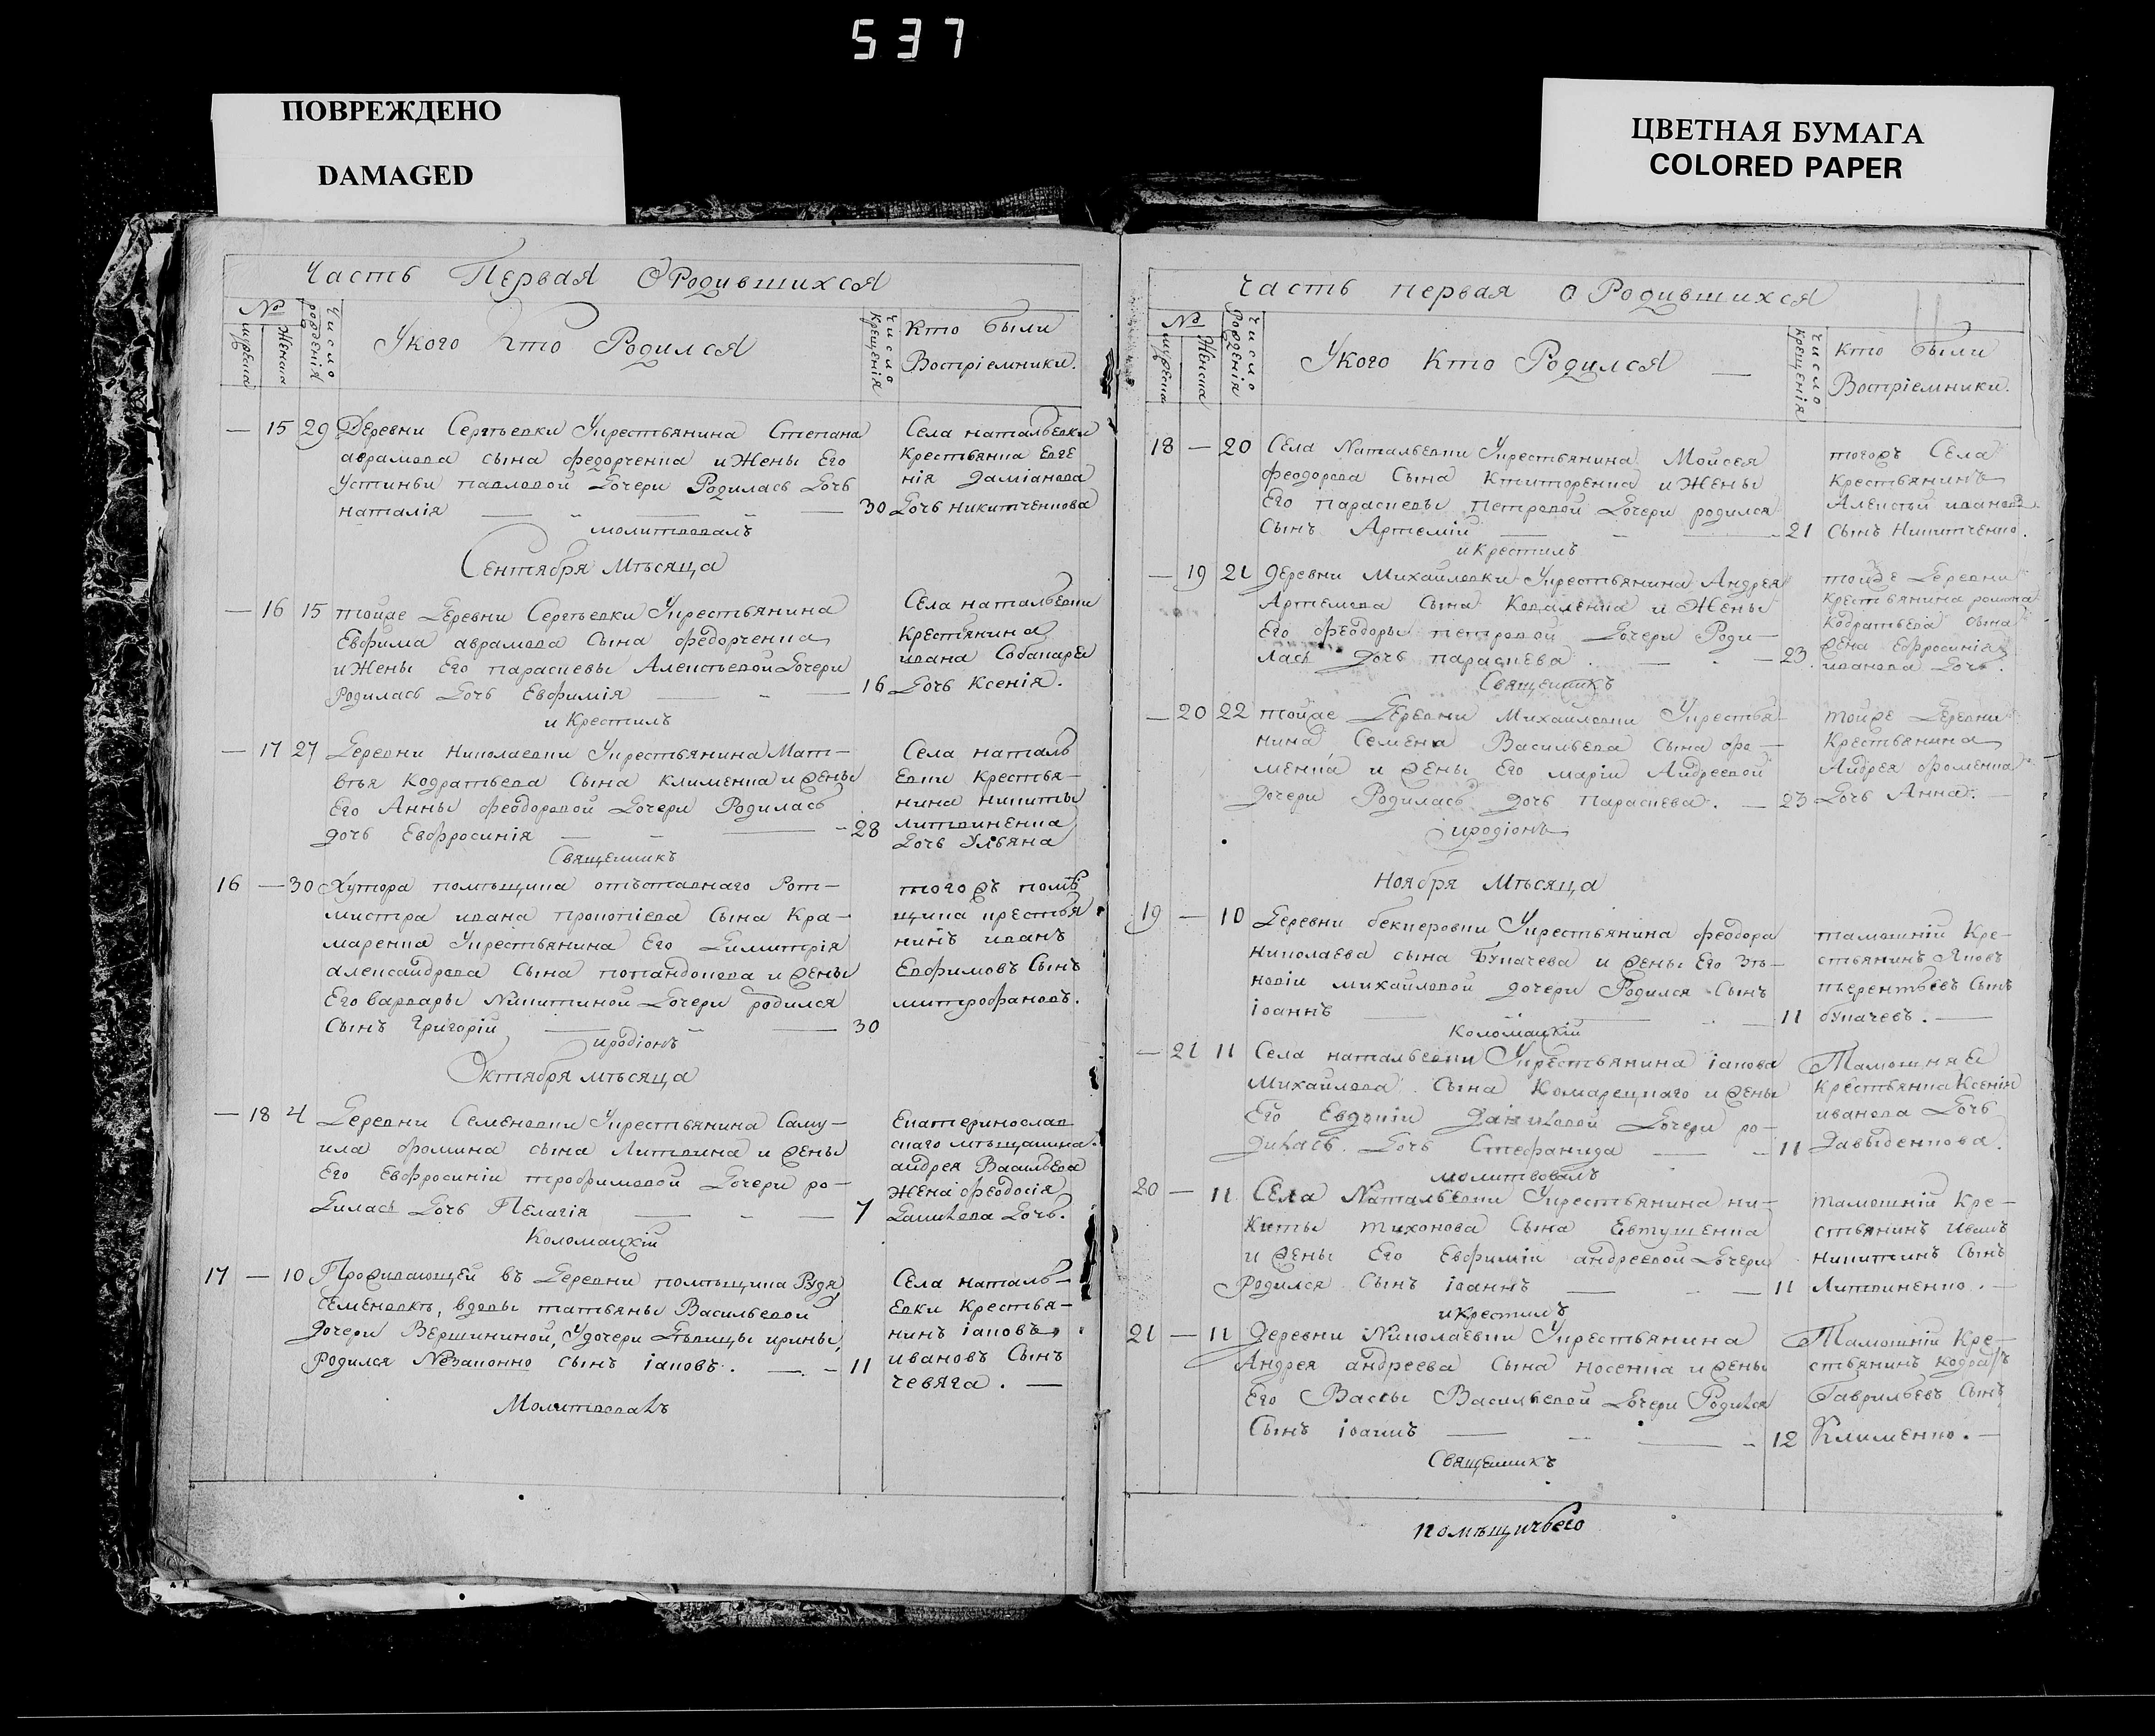 537
ПОВРЕЖДЕНО
DAMAGED
ЦВЕТНАЯ БУМАГА
COLORED PAPER
Часть Первая О Родившихся
№
мужеска
Женска
Число рожденія
У кого Кто Родился
Число Крещенія
Кто были
Воспріемники.
— 15 29 Деревни Сергѣевки У крестьянина Степана
аврамова сына федорченка и Жены Его
Устиньи павловой Дочери Родилась Дочь
наталія — 30
Села натальевки
Крестьянка Евге
нія даміанова
Дочь никитченкова
молитвовалъ
Сентября Мѣсяца
— 16 15 тойже Деревни Сергѣевки У крестьянина
Евфима аврамова Сына федорченка
и Жены Его параскевы Алексѣевой Дочери
Родилась Дочь Евфимія — 16
Села натальевки
Крестянина
ивана Собакаря
Дочь Ксенія.
и Крестилъ
— 17 27 Деревни Николаевки У крестьянина Мат—
вѣя Кодратьева Сына клименка и жены
Его Анны феодоровой Дочери Родилась
дочь Евфросинія — 28
Села наталь
Евки Крестья—
нина никиты
литвиненка
Дочь Ульяна
Священникъ
16 — 30 Хутора помѣщика отъставнаго Рот—
мистра ивана прокопіева Сына Кра—
маренка У крестьянина Его Димитрія
александрова Сына попандопова и жены
Его варвары Никитиной Дочери родился
Сынъ Григорій — 30
того жъ помѣ
щика крестья
нинъ иванъ
Евфимовъ Сынъ
митрофановъ.
иродіонъ
Октября мѣсяца
— 18 4 Деревни Семеновки У крестьянина Саму—
ила фомина сына Литвина и жены
Его Евфросиніи трофимовой Дочери ро—
Дилась Дочь Пелагія — 7
Екатеринослав
скаго мѣщанина
андрея Васильева
Жена феодосія
Данилова Дочь.
Коломацкій
17 — 10 Проживающей въ Деревни помѣщика
Семеновкѣ, вдовы татьяны Васильевой
дочери Вершининой, У дочери Дѣвицы ирины,
Родился Незаконно сынъ іаковъ. — 11
Села наталь—
Евки Крестья—
нинъ іаковъ
ивановъ Сынъ
чевяга. —
Молитвовалъ
Часть первая О Родившихся
№
мужеска
Женска
Число Рожденія
У кого Кто Родился —
Число Крещенія
кто были
Воспріемники.
18 — 20 Села Натальевки У крестьянина Мойсея
феодорова Сына Ктиторенка и Жены
Его параскевы петровой Дочери родился
Сынъ Артемій — 21
тогожъ Села
Крестьянинъ
Алексѣй ивановъ
Сынъ Никитченко.
и Крестилъ
— 19 21 деревни Михайловки У крестьянина Андрея
Артемова Сына Коваленка и Жены
Его феодоры петровой Дочери Роди—
лась дочь параскева. — 23.
тойже Деревни
Крестьянина романа
Кодратьева сына
жена Ефросинія
иванова Дочь.
Священникъ
— 20 22 тойже Деревни Михайловки У крестья
нина Семена Васильева Сына фо—
менка и жены Его маріи Андреевой
дочери Родилась дочь параскева. — 23
тойже Деревни
Крестьянина
Андрея фоменка
Дочь Анна.
иродіонъ
Ноября Мѣсяца
19 — 10 Деревни бекперовки У крестьянина феодора
николаева сына Букачева и жены Его
михайловой дочери Родился Сынъ
іоаннъ — 11
тамошній Кре—
стьянинъ Яковъ
Сынъ
букачевъ. —
Коломацкій
— 21 11 Села натальевки У крестьянина іакова
Михайлова Сына Комарецкаго и жены
Его Евдокіи Даниловой Дочери ро—
дилась Дочь Стефанида — 11
Тамошняя
Крестьянка Ксенія
иванова Дочь
Давыденкова.
молитвовалъ
20 — 11 Села Натальевки У крестьянина ни—
Киты тихонова Сына Евтушенка
и жены Его Евфиміи андреевой Дочери
Родился Сынъ іоаннъ — 11
тамошній Кре—
стьянинъ иванъ
никитинъ Сынъ
Литвиненко. —
и Крестилъ
21 — 11 Деревни Николаевки У крестьянина
Андрея андреева Сына носенка и жены
Его Вассы Васильевой Дочери Родился
Сынъ іоаннъ — 12
Тамошній Кре—
стьянинъ кодратъ
Гавриловъ Сынъ
Клименко. —
Священникъ
помѣщичьего